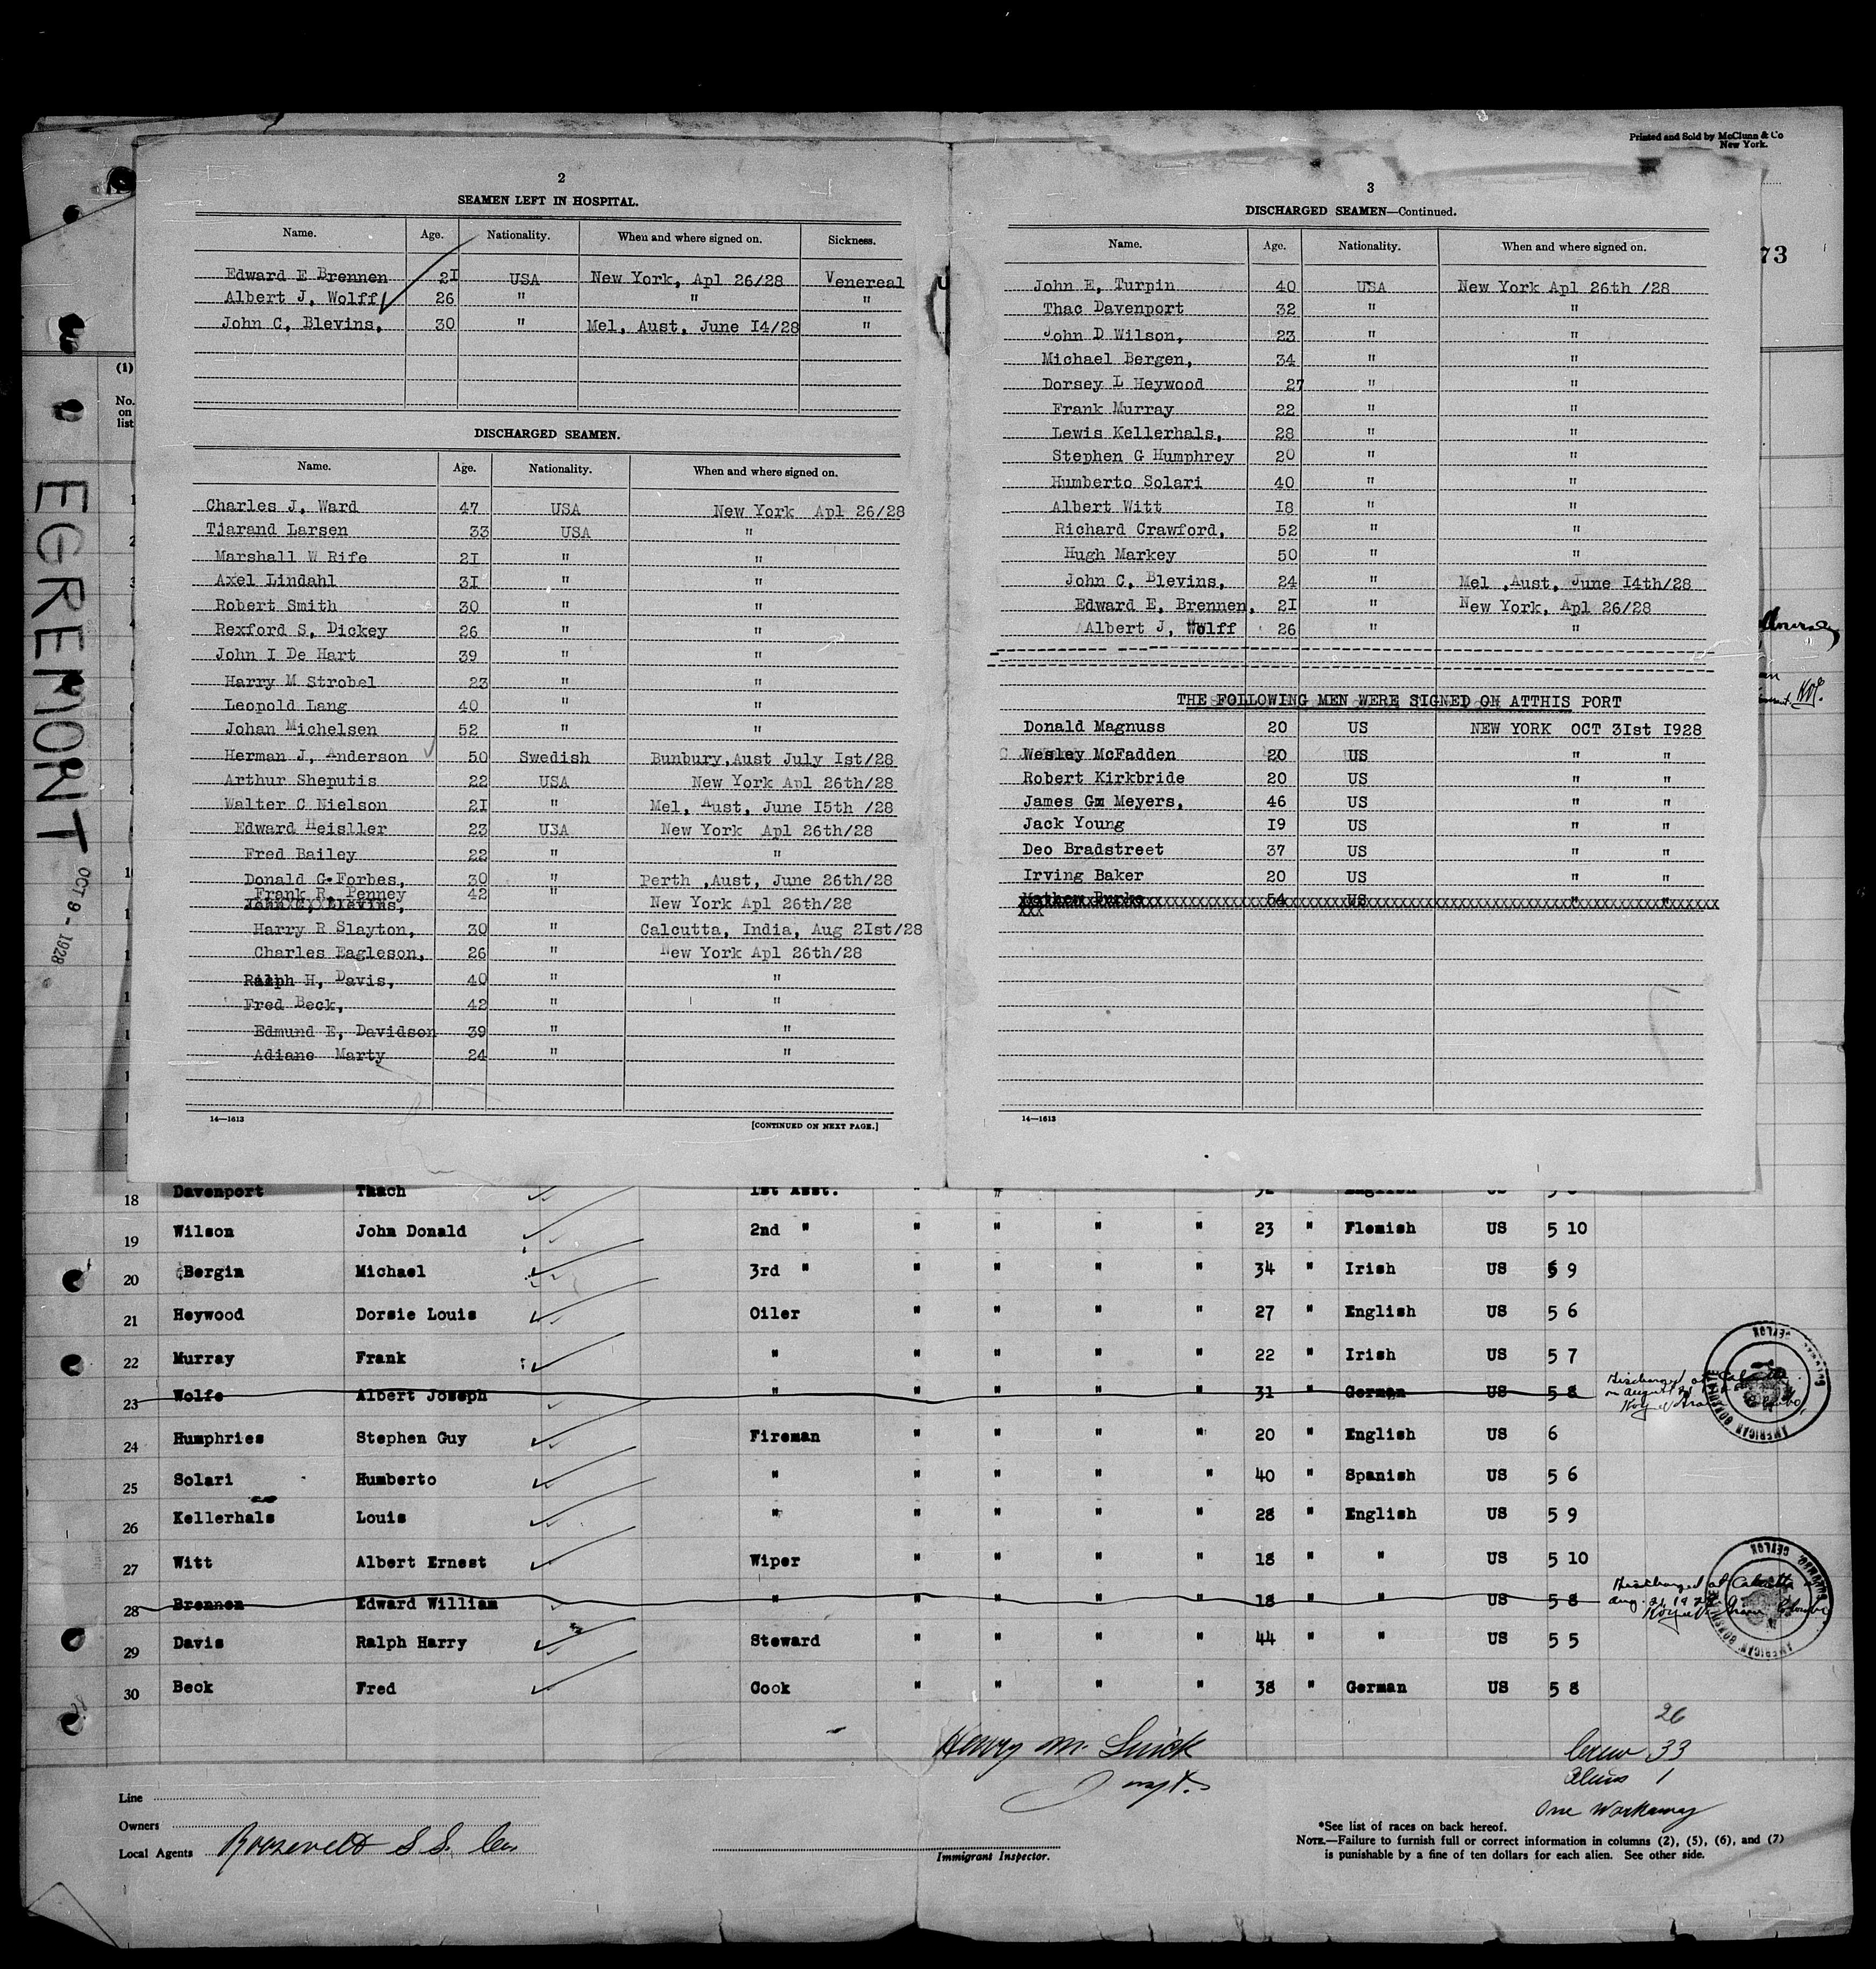 Printed and Sold by McClunn & Co
New York.
73
2
SEAMEN LEFT IN HOSPITAL.
Name. Age. Nationality. When and where signed on. Sickness.
Edward E Brennen 2I USA New York, Apl 26/28 Venereal
Albert J, Wolff 26 " " "
John C, Blevins, 30 " Mel, Aust, June I4/28 "
DISCHARGED SEAMEN.
Name. Age. Nationality. When and where signed on.
Charles J, Ward 47 USA New York Apl 26/28
Tjarand Larsen 33 USA "
Marshall W Rife 2I " "
Axel Lindahl 3I " "
Robert Smith 30 " "
Rexford S, Dickey 26 " "
John I De Hart 39 " "
Harry M Strobel 23 " "
Leopold Lang 40 " "
Johan Michelsen 52 " "
Herman J, Anderson 50 Swedish Bunbury,Aust July Ist/28
Arthur Sheputis 22 USA New York Apl 26th/28
Walter C Nielson 2I " Mel, Aust, June I5th /28
Edward Heisller 23 USA New York Apl 26th/28
Fred Bailey 22 " "
Donald G.Forbes, 30 " Perth ,Aust, June 26th/28
Frank R, Penney 42 " New York Apl 26th/28
Harry R Slayton, 30 " Calcutta, India, Aug 2Ist/28
Charles Eagleson, 26 " New York Apl 26th/28
Ralph H, Davis, 40 " "
Fred Beck, 42 " "
Edmund E, Davidson 39 " "
Adiano Marty 24 " "
14—1613 [CONTINUED ON NEXT PAGE.]
3
DISCHARGED SEAMEN—Continued.
Name. Age. Nationality. When and where signed on.
John E, Turpin 40 USA New York Apl 26th /28
Thac Davenport 32 " "
John D Wilson, 23 " "
Michael Bergen, 34 " "
Dorsey L Heywood 27 " "
Frank Murray 22 " "
Lewis Kellerhals, 28 " "
Stephen G Humphrey 20 " "
Humberto Solari 40 " "
Albert Witt I8 " "
Richard Crawford, 52 " "
Hugh Markey 50 " "
John C, Blevins, 24 " Mel ,Aust, June I4th/28
Edward E, Brennen, 2I " New York, Apl 26/28
Albert J, Wolff 26 " "
THE FOLLOWING MEN WERE SIGNED ON ATTHIS PORT
Donald Magnuss 20 US NEW YORK OCT 3Ist I928
Wesley McFadden 20 US " "
Robert Kirkbride 20 US " "
James G Meyers, 46 US " "
Jack Young I9 US " "
Deo Bradstreet 37 US " "
Irving Baker 20 US " "
Mathew Burke 54 US " "
14—1613
(1)
No.
on
list
EGREMONT
OCT 9 - 1928
18 Davenport Thach 1st Asst. " " 32 English US 5 8
19 Wilson John Donald 2nd " " " " " 23 " Flemish US 5 10
20 Bergin Michael 3rd " " " " " 34 " Irish US 5 9
21 Heywood Dorsie Louis Oiler " " " " 27 " English US 5 6
22 Murray Frank " " " " " 22 " Irish US 5 7
23 Wolfe Albert Joseph " " " " " 31 " German US 5 8
Discharged at Calcutta
on August 21
24 Humphries Stephen Guy Fireman " " " " 20 " English US 6
25 Solari Humberto " " " " " 40 " Spanish US 5 6
26 Kellerhals Louis " " " " " 28 " English US 5 9
27 Witt Albert Ernest Wiper " " " " 18 " " US 5 10
28 Brennen Edward William " " " " " 18 " " US 5 8
Discharged at Calcutta
Aug. 21, 1928
29 Davis Ralph Harry Steward " " " " 44 " " US 5 5
30 Beck Fred Cook " " " " 38 " German US 5 8
26
Crew 33
Aliens 1
One Workaway
Line
Owners
Local Agents Roosevelt S S. Co.
Henry M.
Immigrant Inspector.
*See list of races on back hereof.
NOTE.—Failure to furnish full or correct information in columns (2), (5), (6), and (7)
is punishable by a fine of ten dollars for each alien. See other side.